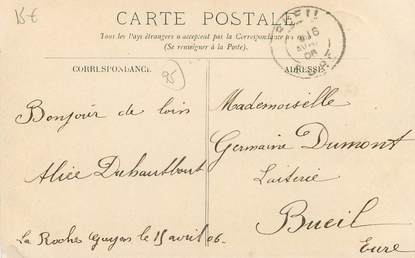 15€
CARTE POSTALE
Tous les Pays étrangers n'acceptent pas la Correspondance au
(Se renseigner à la Poste).
CORRESPONDANCE
ADRESSE
95
BUEIL
16
06
Bonjour de loin
Alice Duhautbout
La Roche Guyon le 15 avril 06.
Mademoiselle
Germaine Dumont
Laiterie
Bueil
Eure